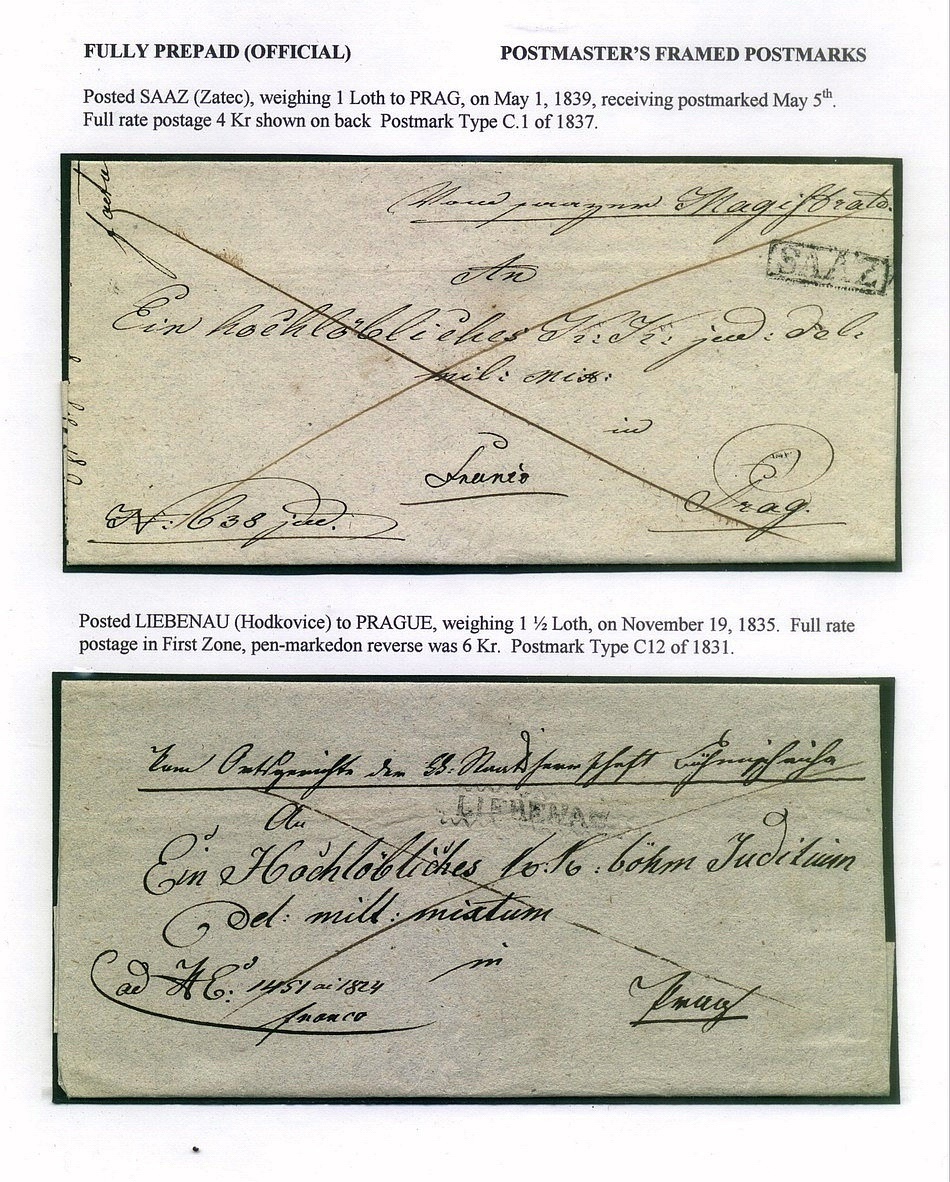 FULLY PREPAID (OFFICIAL)
POSTMASTER'S FRAMED POSTMARKS
Posted SAAZ (Zatec), weighing 1 Loth to PRAG, on May 1, 1839, receiving postmarked May 5th.
Full rate postage 4 Kr shown on back Postmark Type C.1 of 1837.
Magistrate.
SAAZ
An
Ein hochlöbliches K: K: jud: Del:
mil: mix:
in
Franco
Prag.
N: 1638 jud.
Posted LIEBENAU (Hodkovice) to PRAGUE, weighing 1 ½ Loth, on November 19, 1835. Full rate
postage in First Zone, pen-markedon reverse was 6 Kr. Postmark Type C12 of 1831.
Vom Ortsgerichte der Staatsherrschaft
LIEBENAU
An
Ein Hochlöbliches K. K: böhm Juditium
Del: milt: mixtum
in
ad 1451 ai 1824
franco
Prag